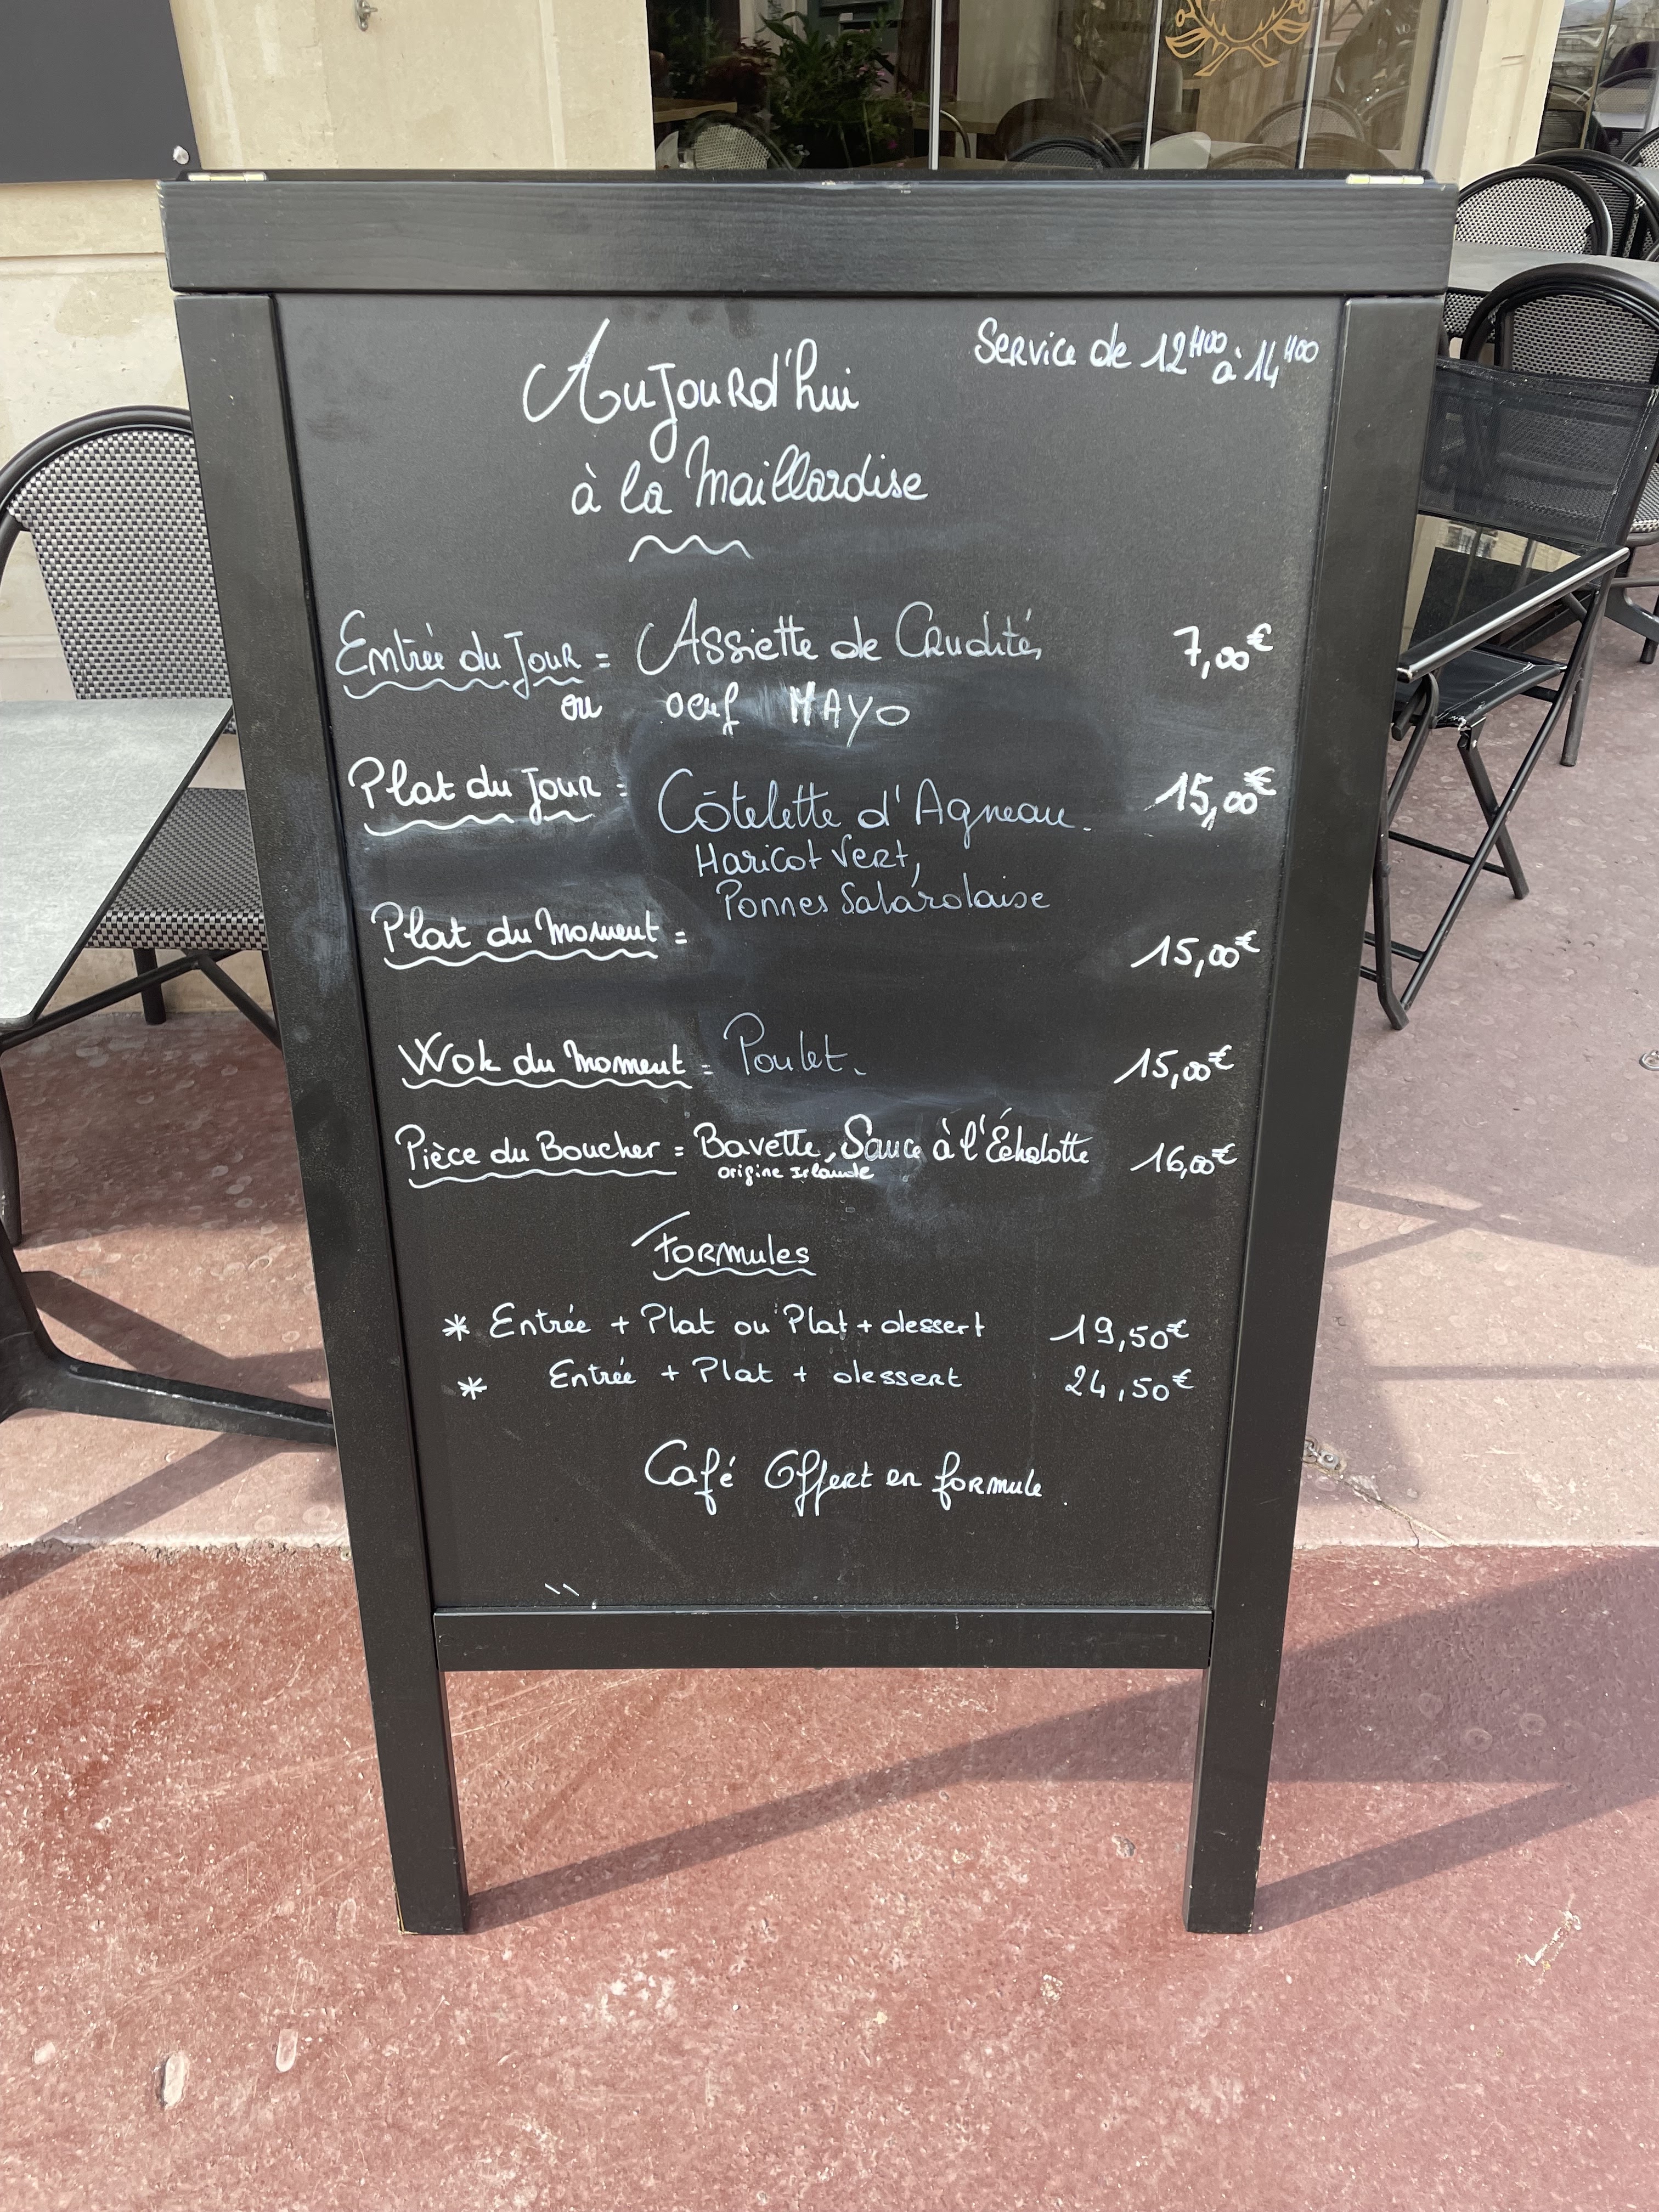 Service de 12H00 à 14H00
Aujourd'hui
à la Maillardise
Entrée du Jour = Assiette de Crudités 7,00€
ou oeuf MAYO
Plat du Jour = Côtelette d'Agneau. 15,00€
Haricot Vert,
Pommes Salarolaise
Plat du Moment = 15,00€
Wok du Moment = Poulet. 15,00€
Pièce du Boucher = Bavette, Sauce à l'Échalotte 16,00€
origine Irlande
Formules
* Entrée + Plat ou Plat + dessert 19,50€
* Entrée + Plat + dessert 24,50€
Café Offert en formule.